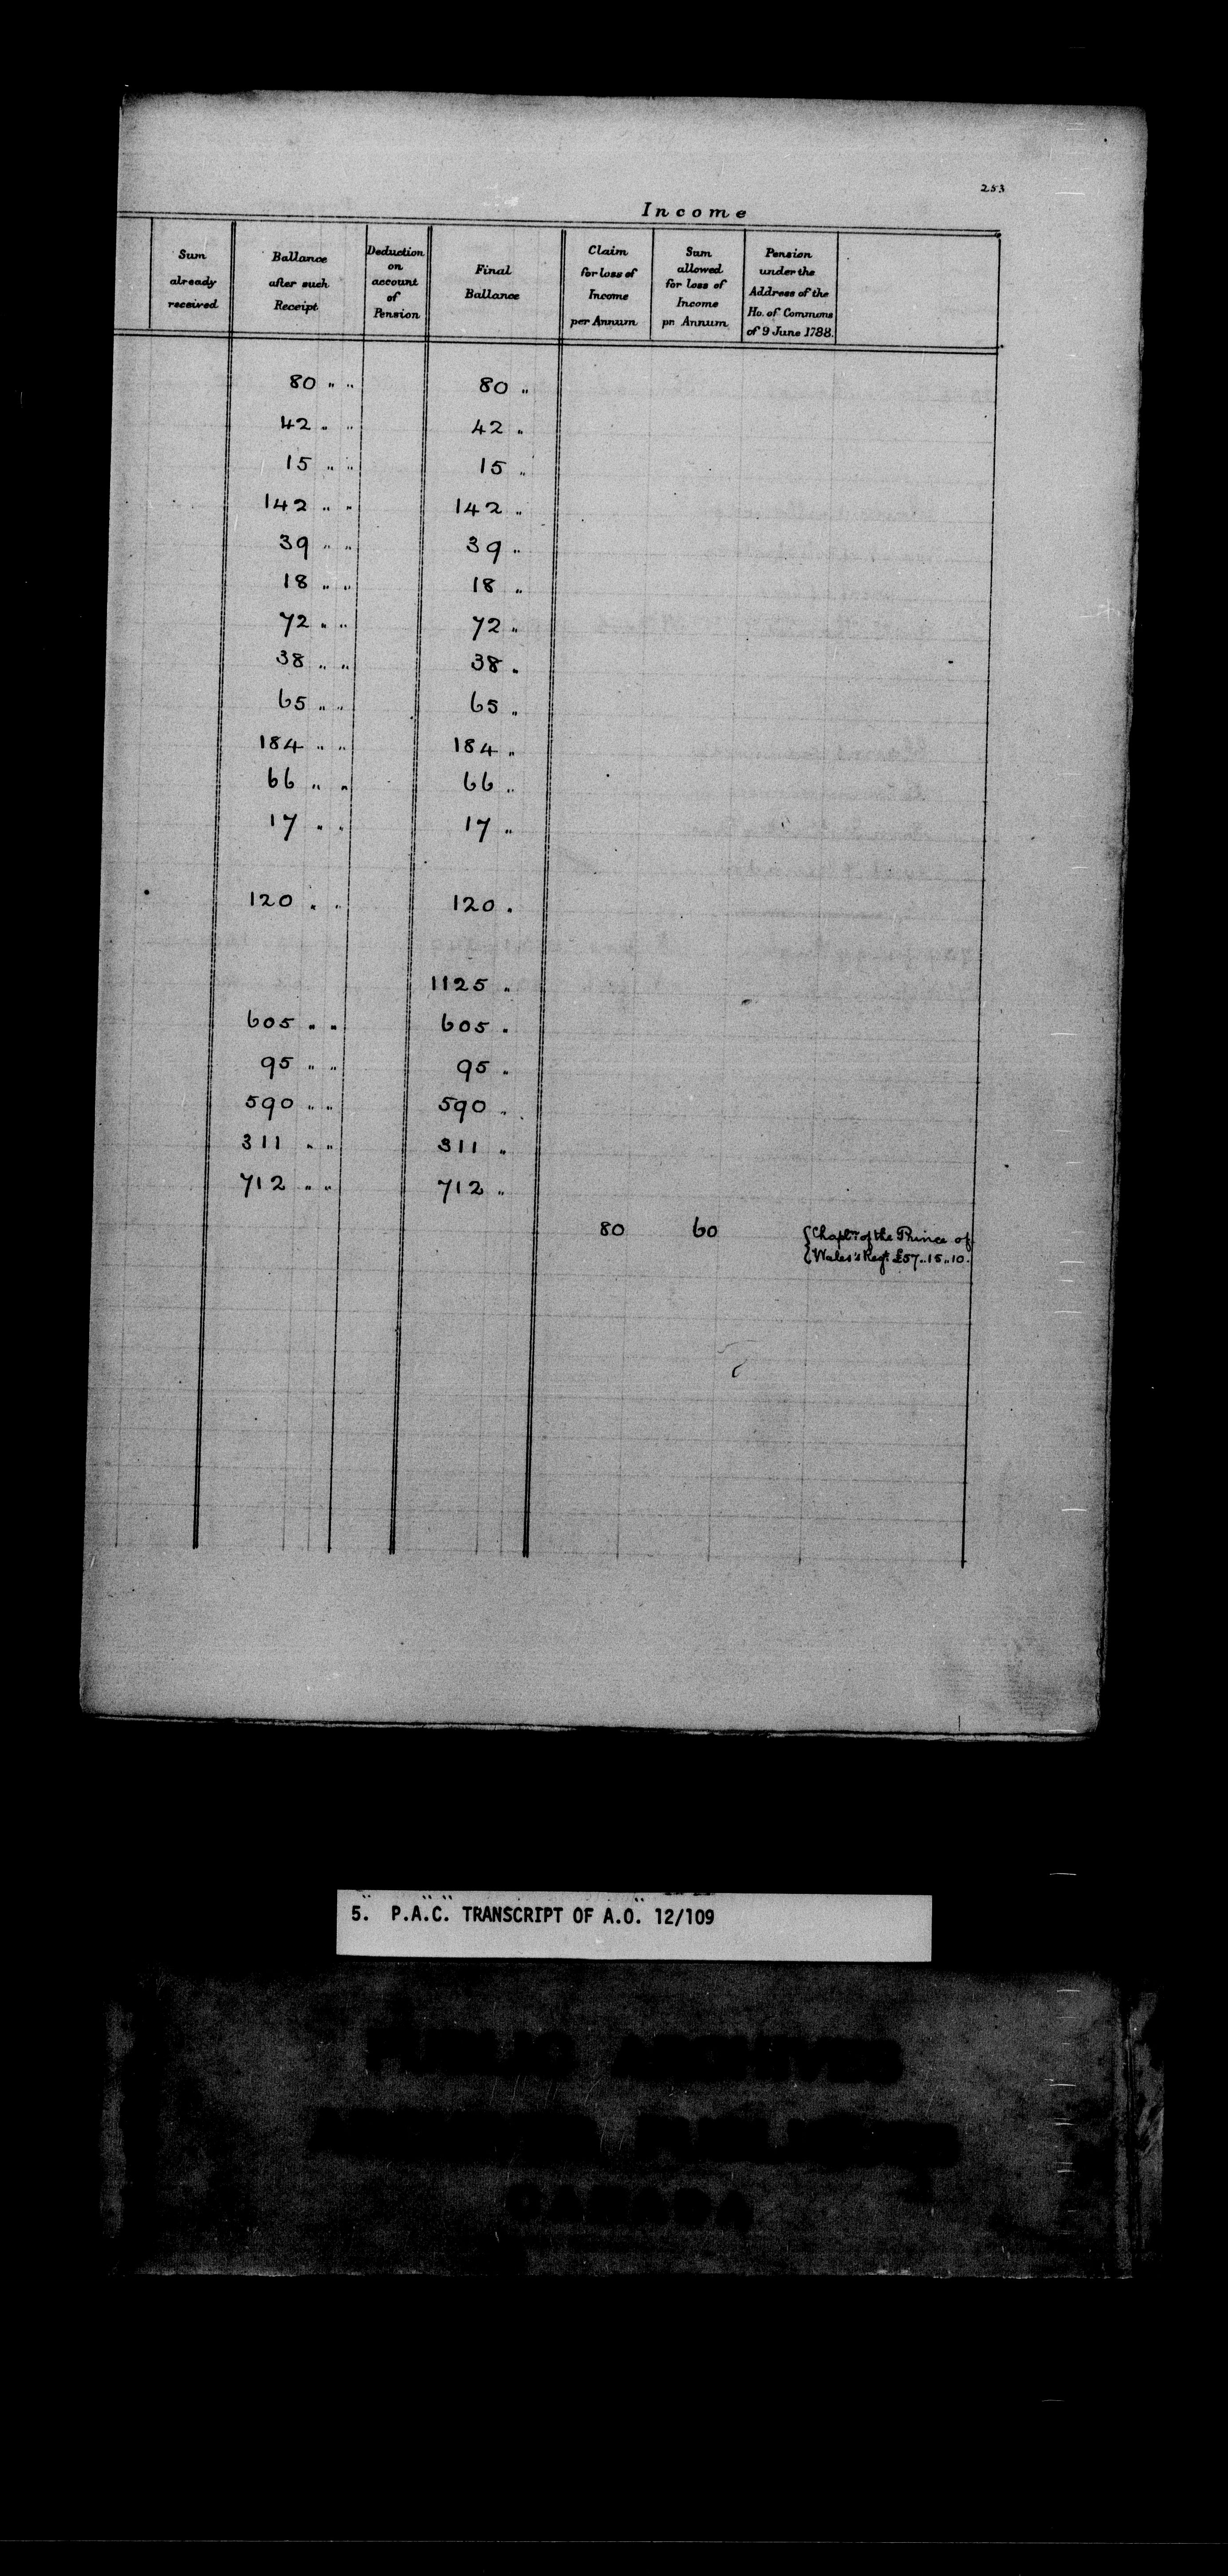 253
Income
Sum already received | Ballance after such Receipt | Deduction on account of Pension | Final Ballance | Claim for loss of Income per Annum | Sum allowed for loss of Income pr Annum | Pension under the Address of the Ho. of Commons of 9 June 1788.
80 " " 80 "
42 " " 42 "
15 " " 15 "
142 " " 142 "
39 " " 39 "
18 " " 18 "
72 " " 72 "
38 " " 38 "
65 " " 65 "
184 " " 184 "
66 " " 66 "
17 " " 17 "
120 " " 120 "
1125 "
605 " " 605 "
95 " " 95 "
590 " " 590 "
311 " " 311 "
712 " " 712 "
80 60 { Chapln of the Prince of
{ Wales's Regt £57..15..10.
5. P.A.C. TRANSCRIPT OF A.O. 12/109
PUBLIC ARCHIVES
CANADA